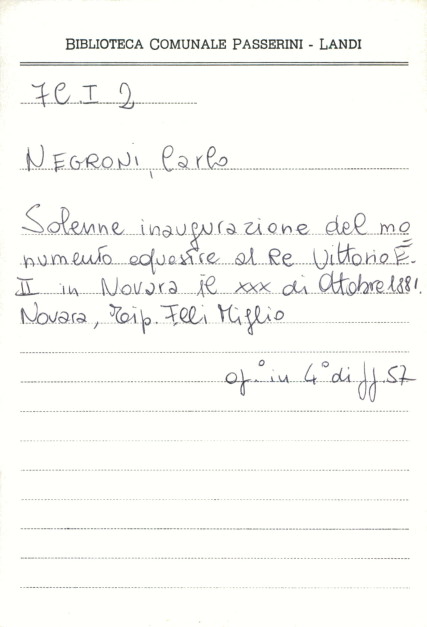 BIBLIOTECA COMUNALE PASSERINI - LANDI
7C I 2
NEGRONI, Carlo
Solenne inaugurazione del mo
numento equestre al Re Vittorio E.
II in Novara il xxx di Ottobre 1881.
Novara, Tip. F.lli Miglio
op.° in 4° di ff. 57